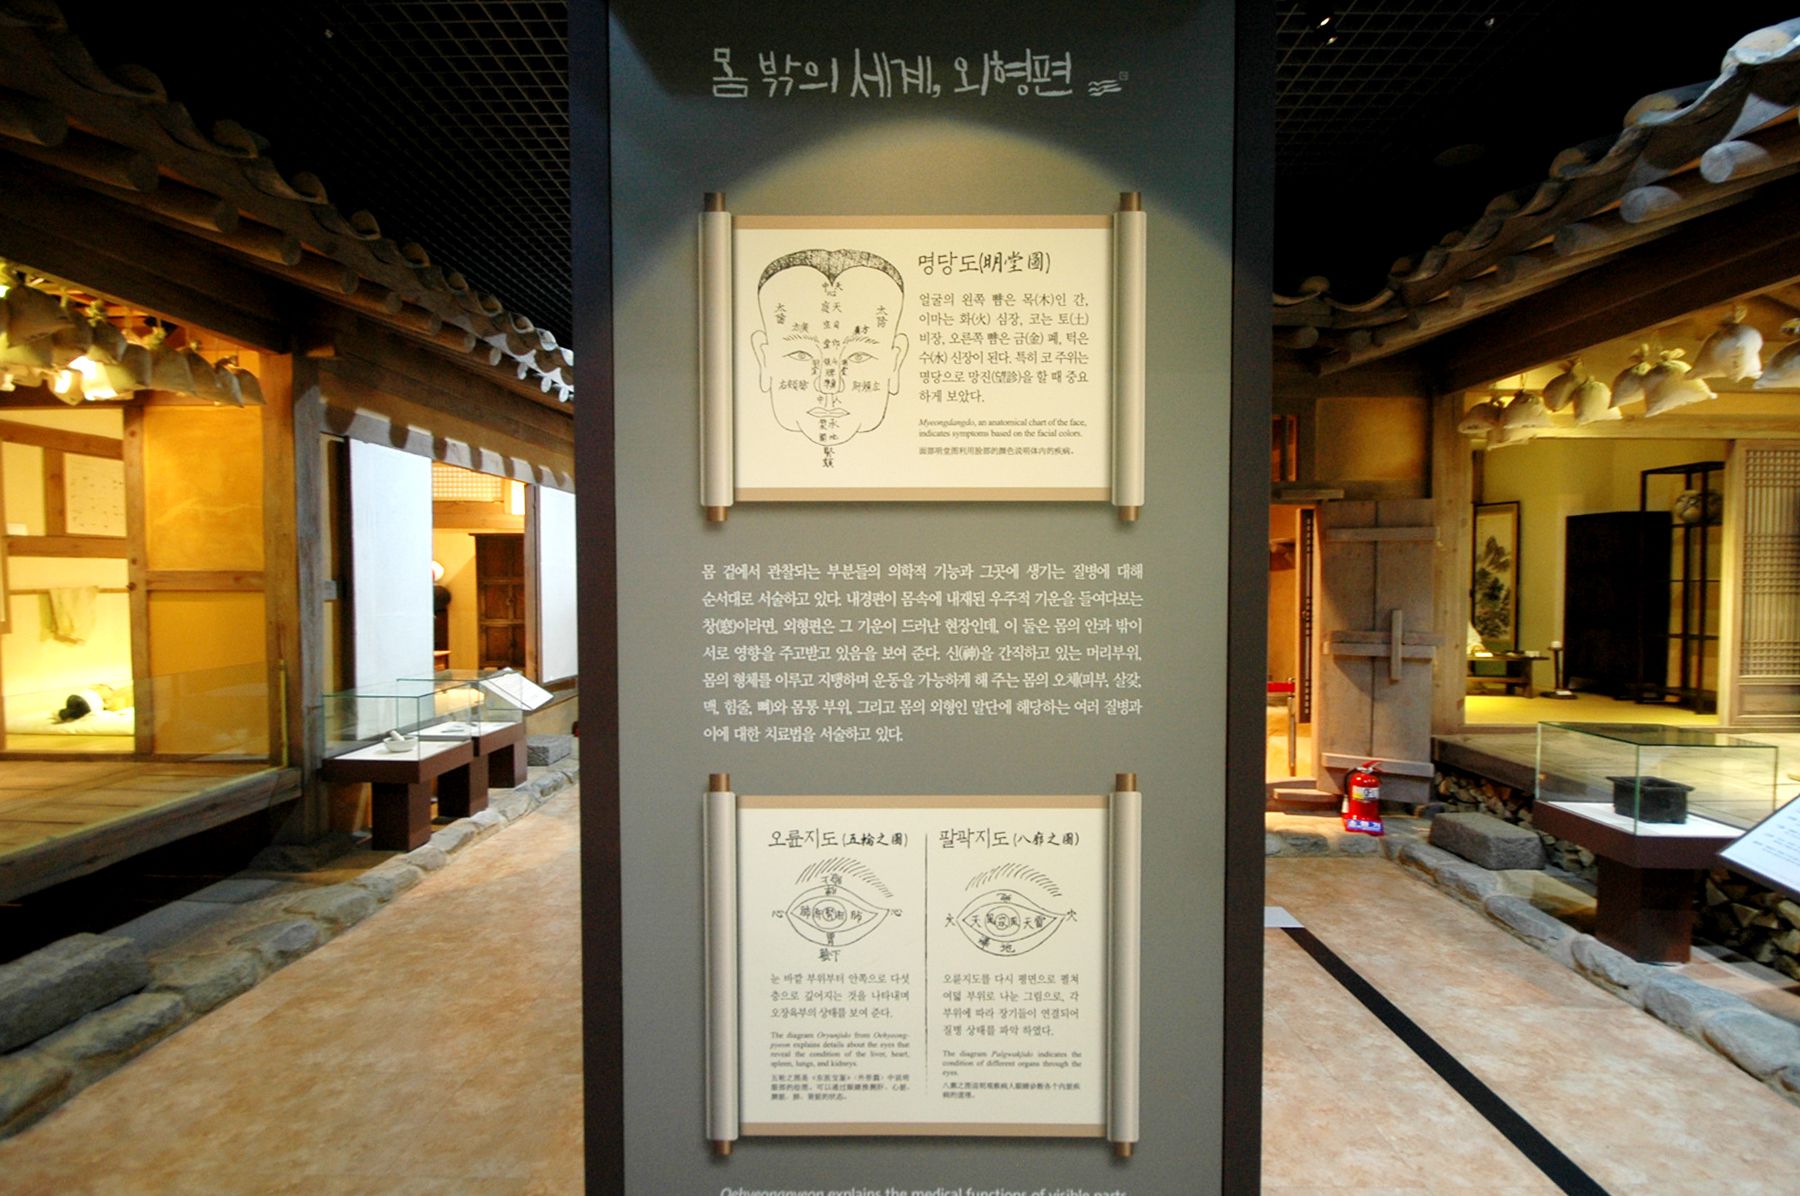 몸 밖의 세계, 외형편
명당도(明堂圖)
얼굴의 왼쪽 뺨은 목(木)인 간,
이마는 화(火) 심장, 코는 토(土)
비장, 오른쪽 뺨은 금(金) 폐, 턱은
수(水) 신장이 된다. 특히 코 주위는
명당으로 망진(望診)을 할 때 중요
하게 보았다.
Myeongdangdo, an anatomical chart of the face,
indicates symptoms based on the facial colors.
面部明堂图利用脸部的颜色说明体内的疾病。
몸 겉에서 관찰되는 부분들의 의학적 기능과 그곳에 생기는 질병에 대해
순서대로 서술하고 있다. 내경편이 몸속에 내재된 우주적 기운을 들여다보는
창(窓)이라면, 외형편은 그 기운이 드러난 현장인데, 이 둘은 몸의 안과 밖이
서로 영향을 주고받고 있음을 보여 준다. 신(神)을 간직하고 있는 머리부위,
몸의 형체를 이루고 지탱하며 운동을 가능하게 해 주는 몸의 오체(피부, 살갗,
맥, 힘줄, 뼈)와 몸통 부위, 그리고 몸의 외형인 말단에 해당하는 여러 질병과
이에 대한 치료법을 서술하고 있다.
오륜지도 (五輪之圖)
心 肺 肝 腎 肝 肺 心
胃
눈 바깥 부위부터 안쪽으로 다섯
층으로 깊어지는 것을 나타내며
오장육부의 상태를 보여 준다.
The diagram Oryunjido from Oehyeong-
pyeon explains details about the eyes that
reveal the condition of the liver, heart,
spleen, lungs, and kidneys.
五轮之图是《东医宝鉴》〈外形篇〉中说明
眼部的绘图。可以通过眼睛推测肝、心脏、
脾脏、肺、肾脏的状态。
팔곽지도 (八廓之圖)
火 天 風 風 天 雷 火
地
오륜지도를 다시 평면으로 펼쳐
여덟 부위로 나눈 그림으로, 각
부위에 따라 장기들이 연결되어
질병 상태를 파악 하였다.
The diagram Palgwakjido indicates the
condition of different organs through the
eyes.
八廓之图说明观察病人眼睛诊断各个内脏疾
病的道理。
Oehyeongpyeon explains the medical functions of visible parts